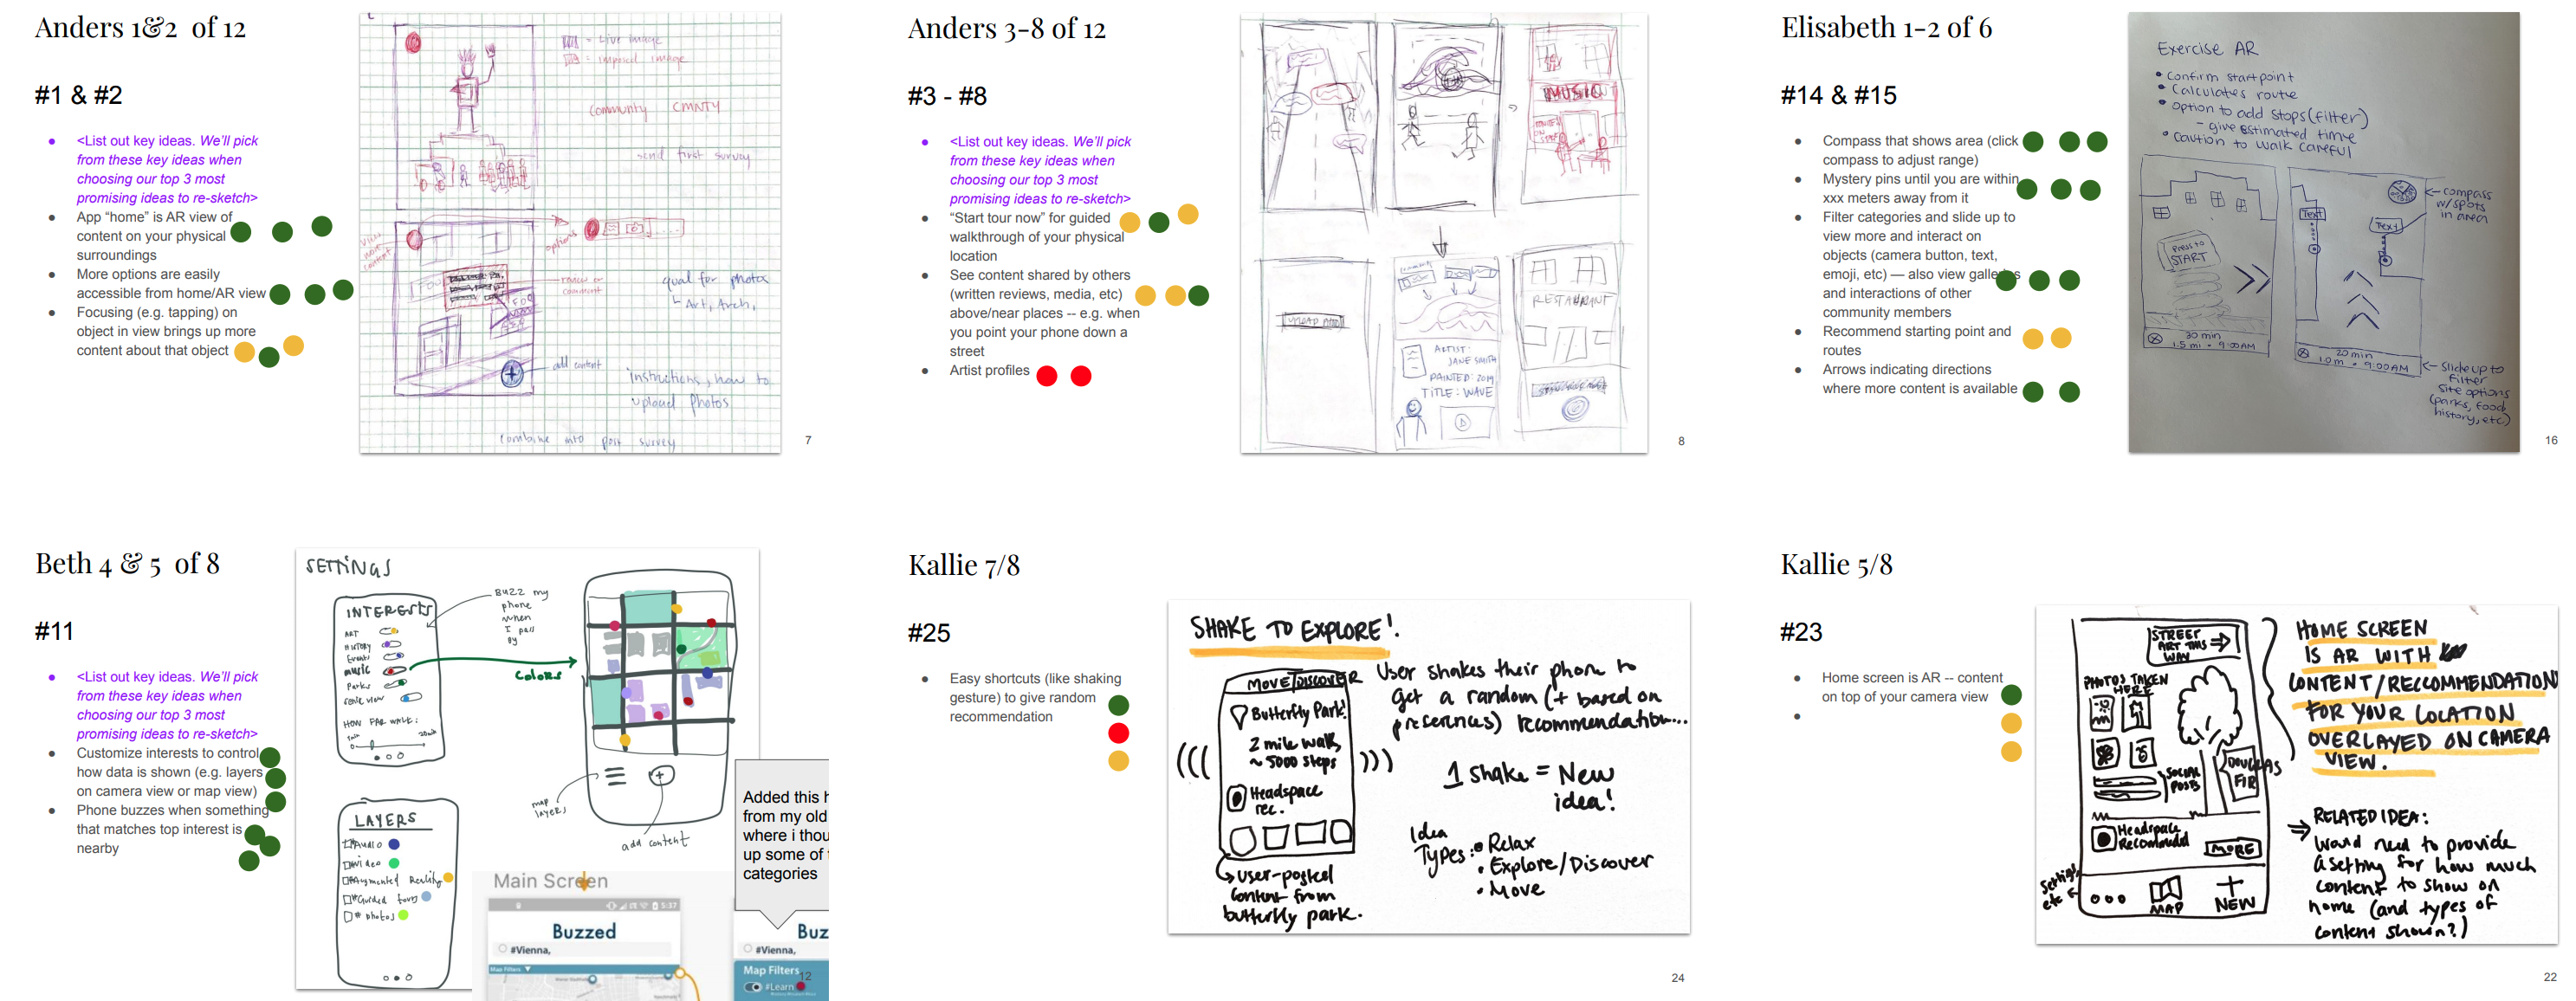 Anders 1&2 of 12
#1 & #2
<List out key ideas. We'll pick
from these key ideas when
choosing our top 3 most
promising ideas to re-sketch>
App "home" is AR view of
content on your physical
surroundings
More options are easily
accessible from home/AR view
Focusing (e.g. tapping) on
object in view brings up more
content about that object
= Live image
= imposed image
community CMNTY
send first survey
options
review or
comment
qual for photos
Art, Arch,
add content
instructions, how to
upload photos
combine into post survey
7
Anders 3-8 of 12
#3 - #8
<List out key ideas. We'll pick
from these key ideas when
choosing our top 3 most
promising ideas to re-sketch>
"Start tour now" for guided
walkthrough of your physical
location
See content shared by others
(written reviews, media, etc)
above/near places -- e.g. when
you point your phone down a
street
Artist profiles
MUSIC
RESTAURANT
ARTIST:
JANE SMITH
PAINTED: 2019
TITLE: WAVE
8
Elisabeth 1-2 of 6
#14 & #15
Compass that shows area (click
compass to adjust range)
Mystery pins until you are within
xxx meters away from it
Filter categories and slide up to
view more and interact on
objects (camera button, text,
emoji, etc) — also view galleries
and interactions of other
community members
Recommend starting point and
routes
Arrows indicating directions
where more content is available
Exercise AR
Confirm startpoint
Calculates route
option to add stops (filter)
- give estimated time
caution to walk careful
compass
w/spots
in area
Text
Text
Press to
START
30 min
1.5 mi • 9:00AM
20 min
1.0 m • 9:00AM
Slide up to
filter
site options
(parks, food,
history, etc)
16
Beth 4 & 5 of 8
#11
<List out key ideas. We'll pick
from these key ideas when
choosing our top 3 most
promising ideas to re-sketch>
Customize interests to control
how data is shown (e.g. layers
on camera view or map view)
Phone buzzes when something
that matches top interest is
nearby
SETTINGS
INTERESTS
ART
HISTORY
Events
music
Parks
HOW FAR WALK:
BUZZ my
phone
when
I pass
by
Colors
map
layers
add content
LAYERS
Audio
Video
Augmented Reality
Guided tours
photos
Added this h
from my old
where i thou
up some of
categories
Main Screen
5:37
Buzzed
#Vienna,
Map Filters
Buz
#Vienna,
Map Filters
#Learn
12
Kallie 7/8
#25
Easy shortcuts (like shaking
gesture) to give random
recommendation
SHAKE TO EXPLORE!
MOVE/DISCOVER
Butterfly Park!
2 mile walk,
~ 5000 steps
Headspace
rec.
User-posted
content from
butterfly park.
User shakes their phone to
get a random (+ based on
preferences) recommendation...
1 shake = New
idea!
Idea
Types:
Relax
Explore/Discover
Move
24
Kallie 5/8
#23
Home screen is AR -- content
on top of your camera view
STREET
ART THIS
WAY
PHOTOS TAKEN
HERE
SOCIAL
POSTS
DOUGLAS
FIR
Headspace
Recommended
MORE
Settings
etc
MAP
NEW
HOME SCREEN
IS AR WITH
CONTENT/RECCOMMENDATION
FOR YOUR LOCATION
OVERLAYED ON CAMERA
VIEW.
RELATED IDEA:
Would need to provide
a setting for how much
content to show on
home (and types of
content shown?)
22